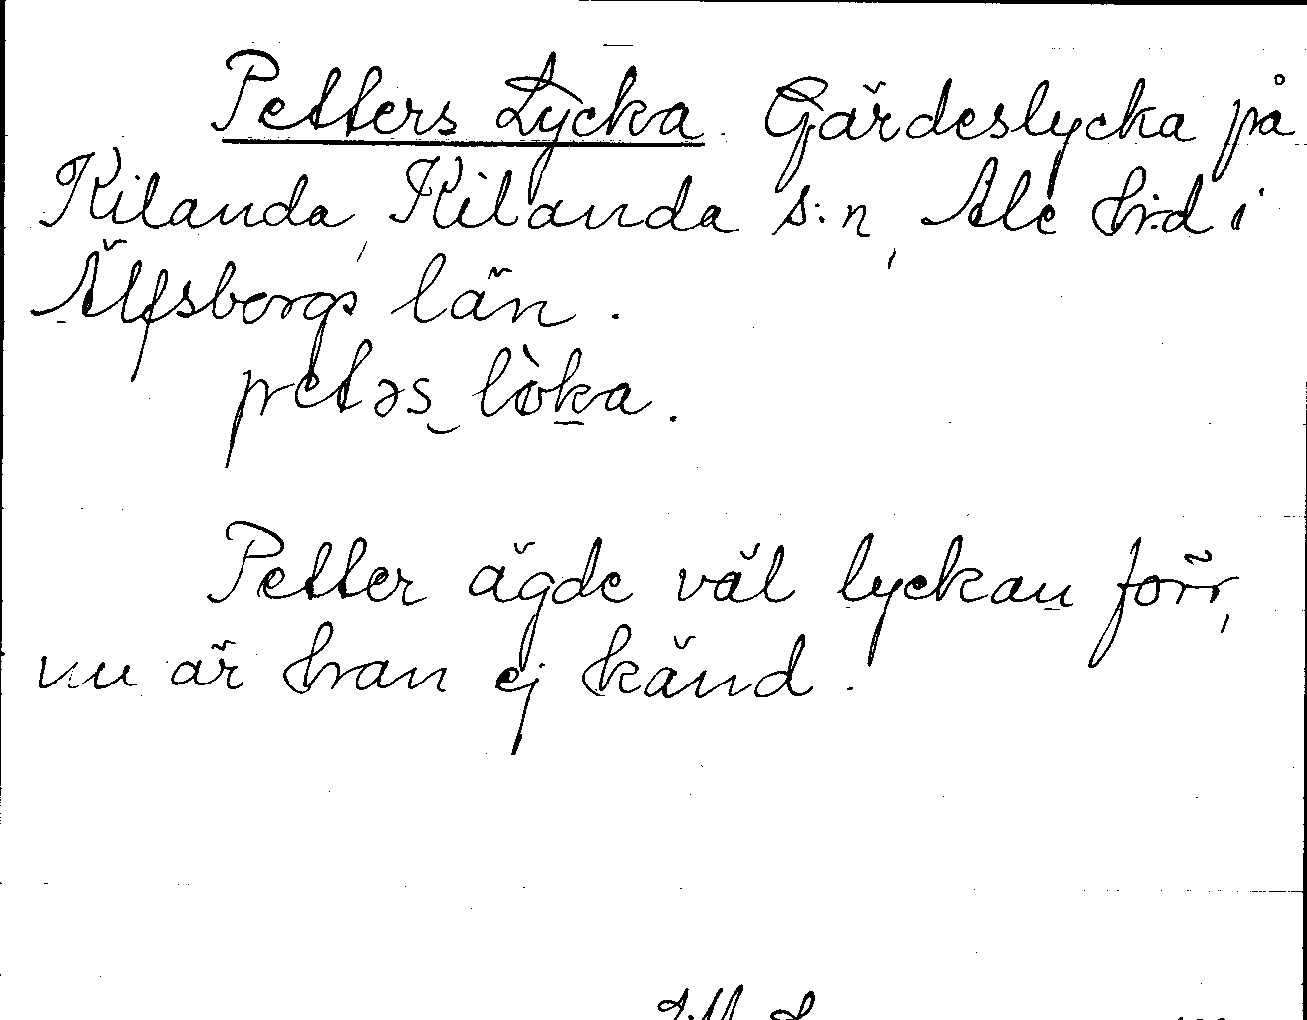 Petters Lycka. Gärdeslycka på
Kilanda, Kilanda s:n, Ale hrd i
Älfsborgs län.
petəs lòka.
Petter ägde väl lyckan förr,
nu är han ej känd.